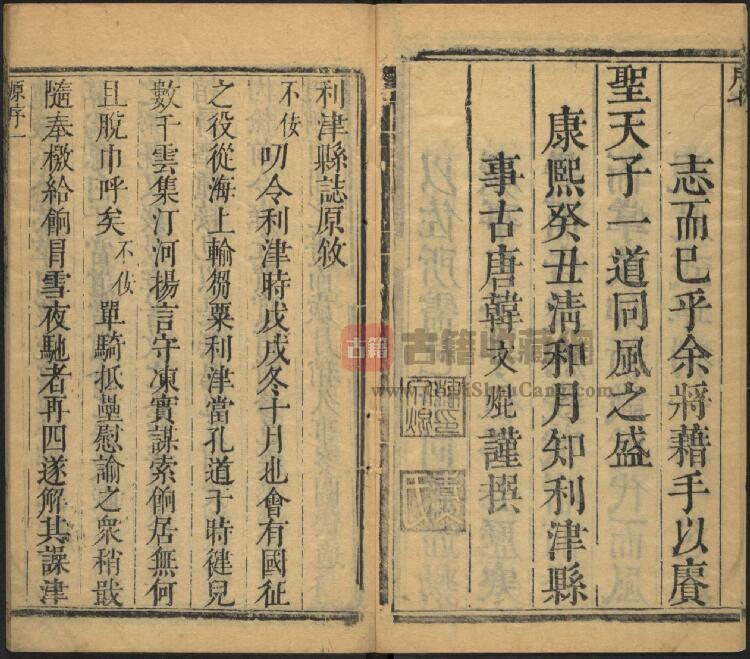 序七
志而已乎余將藉手以賡
聖天子一道同風之盛
康熙癸丑清和月知利津縣
事古唐韓文焜謹撰
利津縣誌原敘
不佞叨令利津時戊戌冬十月也會有國征
之役從海上輸芻粟利津當孔道于時健兒
數千雲集汀河揚言守凍實謀索餉居無何
且脫巾呼矣不佞單騎抵壘慰諭之衆稍戢
隨奉檄給餉冒雪夜馳者再四遂解其譟津
源序一
古籍
古籍收藏網